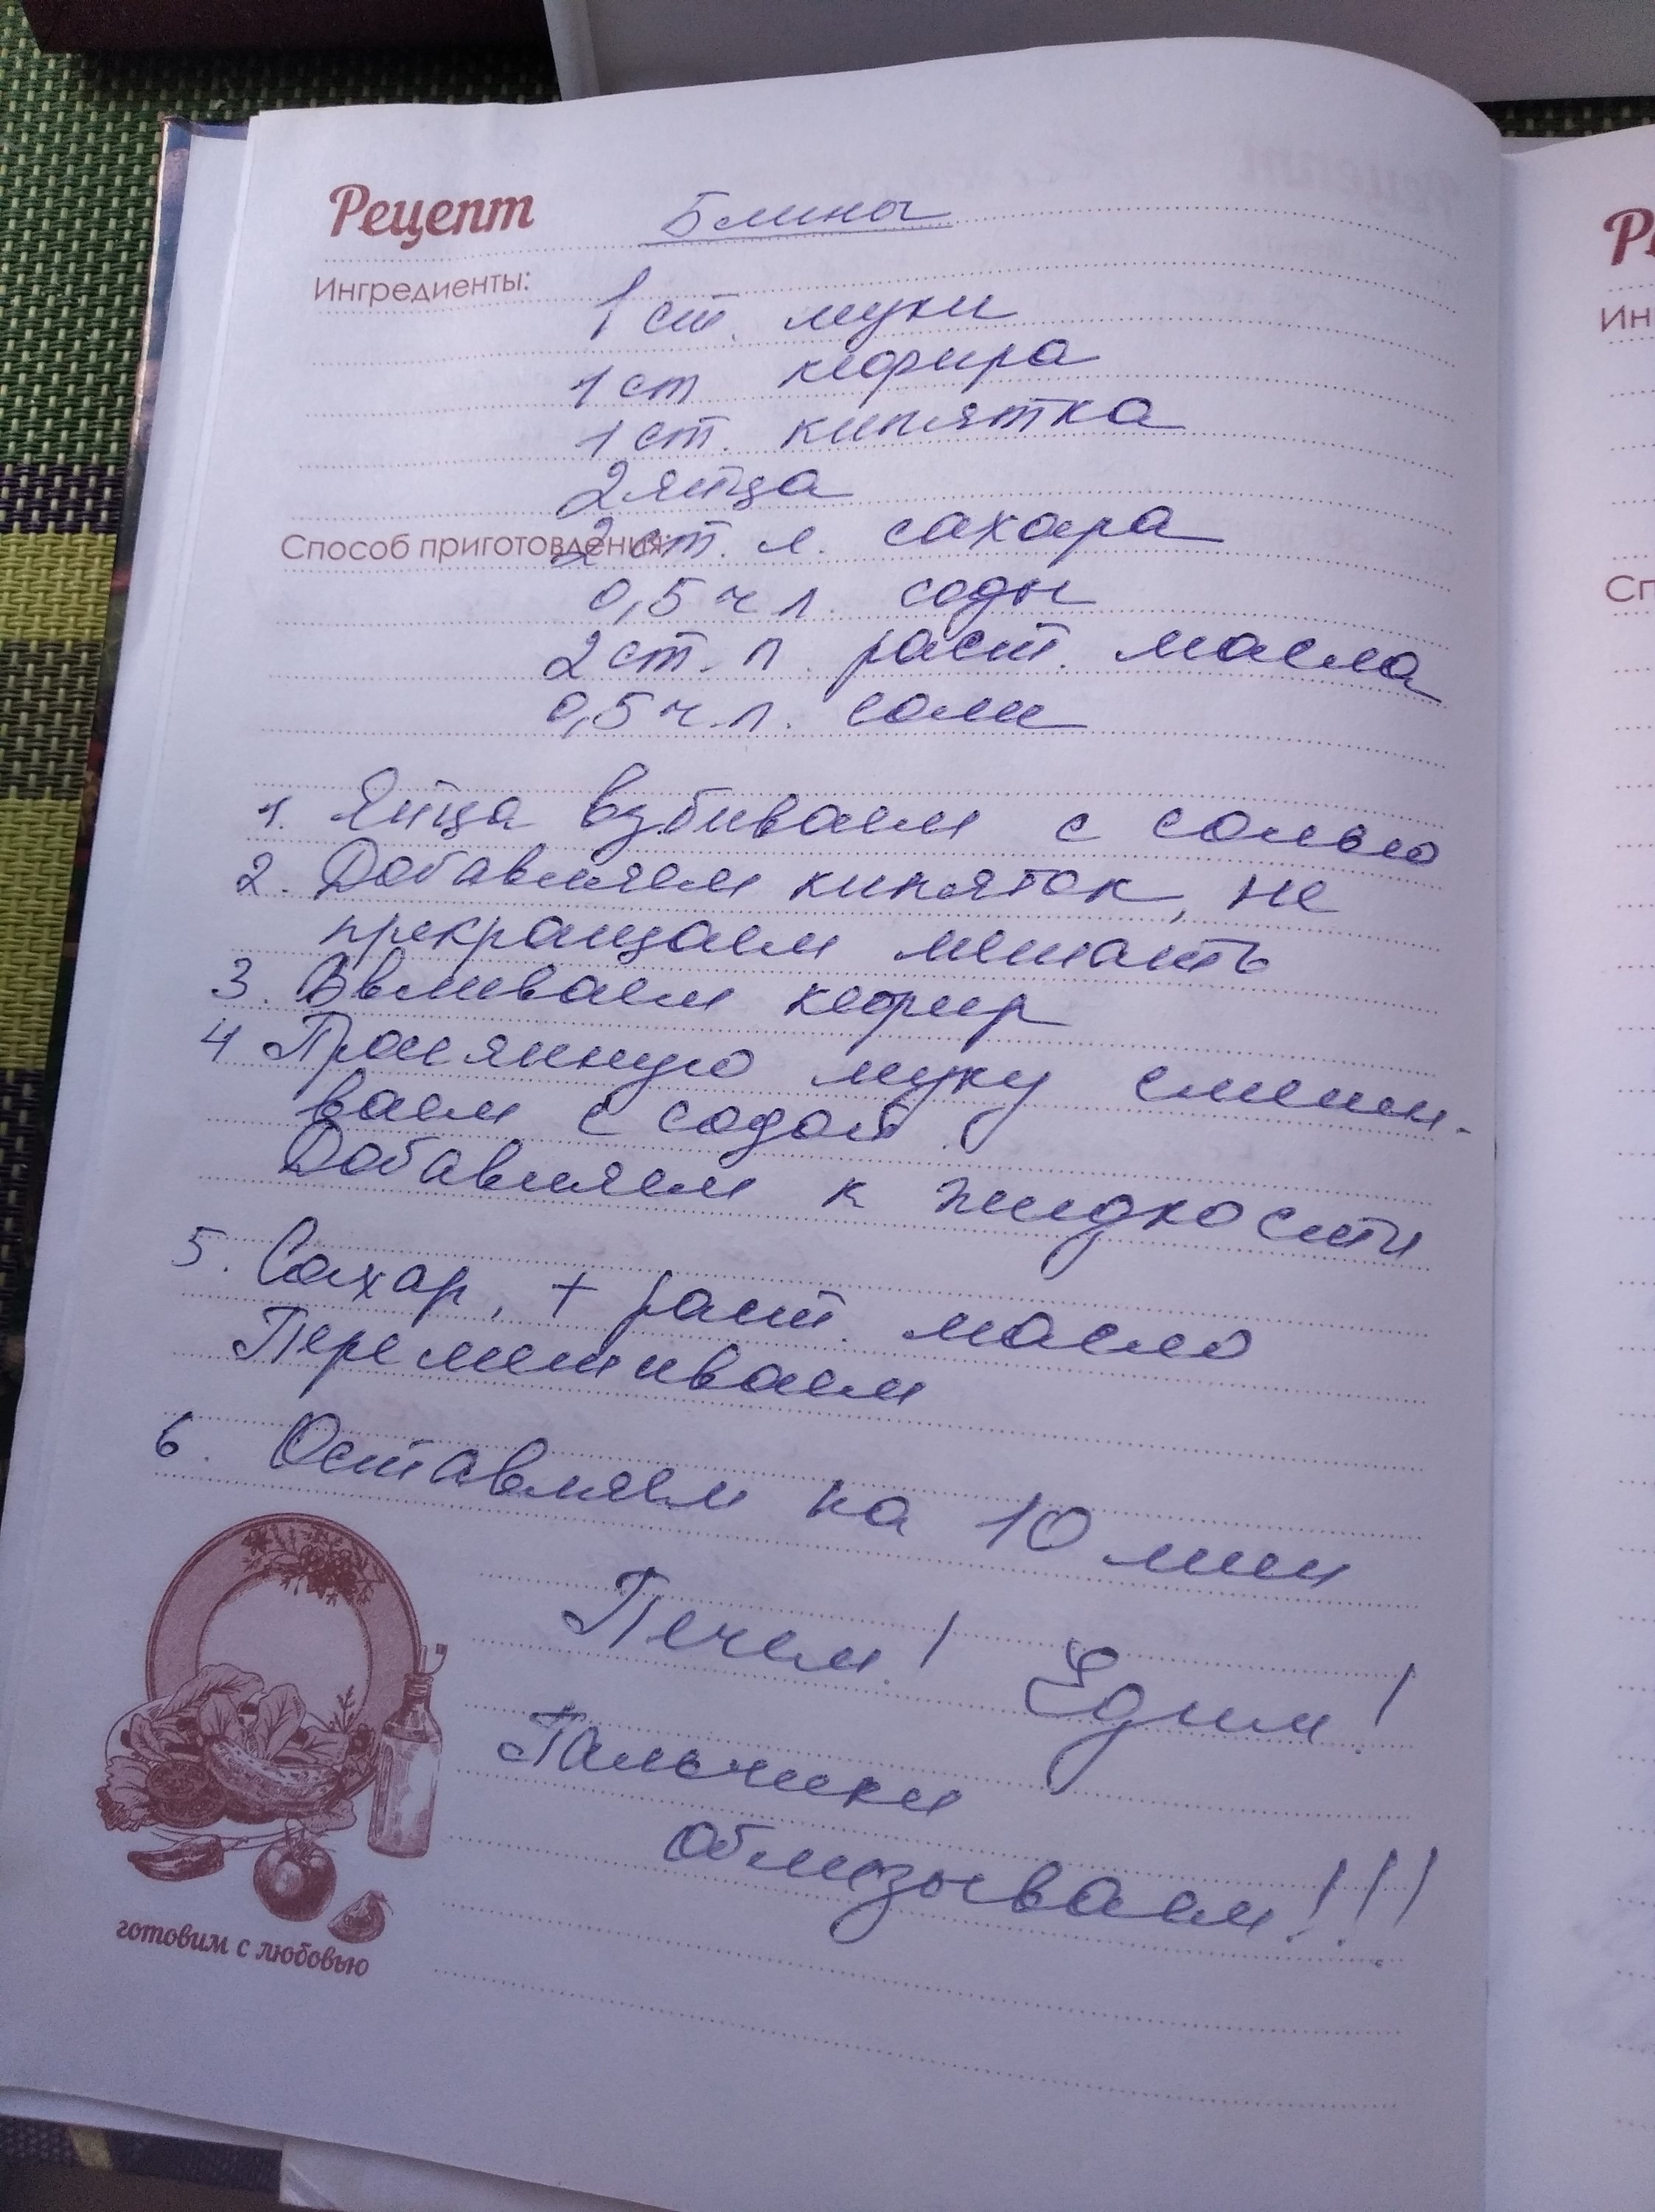 Рецепт Блины
Ингредиенты:
1 ст. муки
1 ст кефира
1 ст. кипятка
2 яйца
Способ приготовления:
2 ст. л. сахара
0,5 ч л. соды
2 ст. л. раст. масла
0,5 ч.л. соли
1. Яйца взбиваем с солью
2. Добавляем кипяток, не
прекращаем мешать
3. Ввливаем кефир
4 Просянную муку смеши-
ваем с содой.
Добавляем к жидкости
5. Сахар, + раст. масло
Перемешиваем
6. Оставляем на 10 мин
Печем! Едим!
Пальчики
облизываем!!!
готовим с любовью
Ре
Ин
Сп